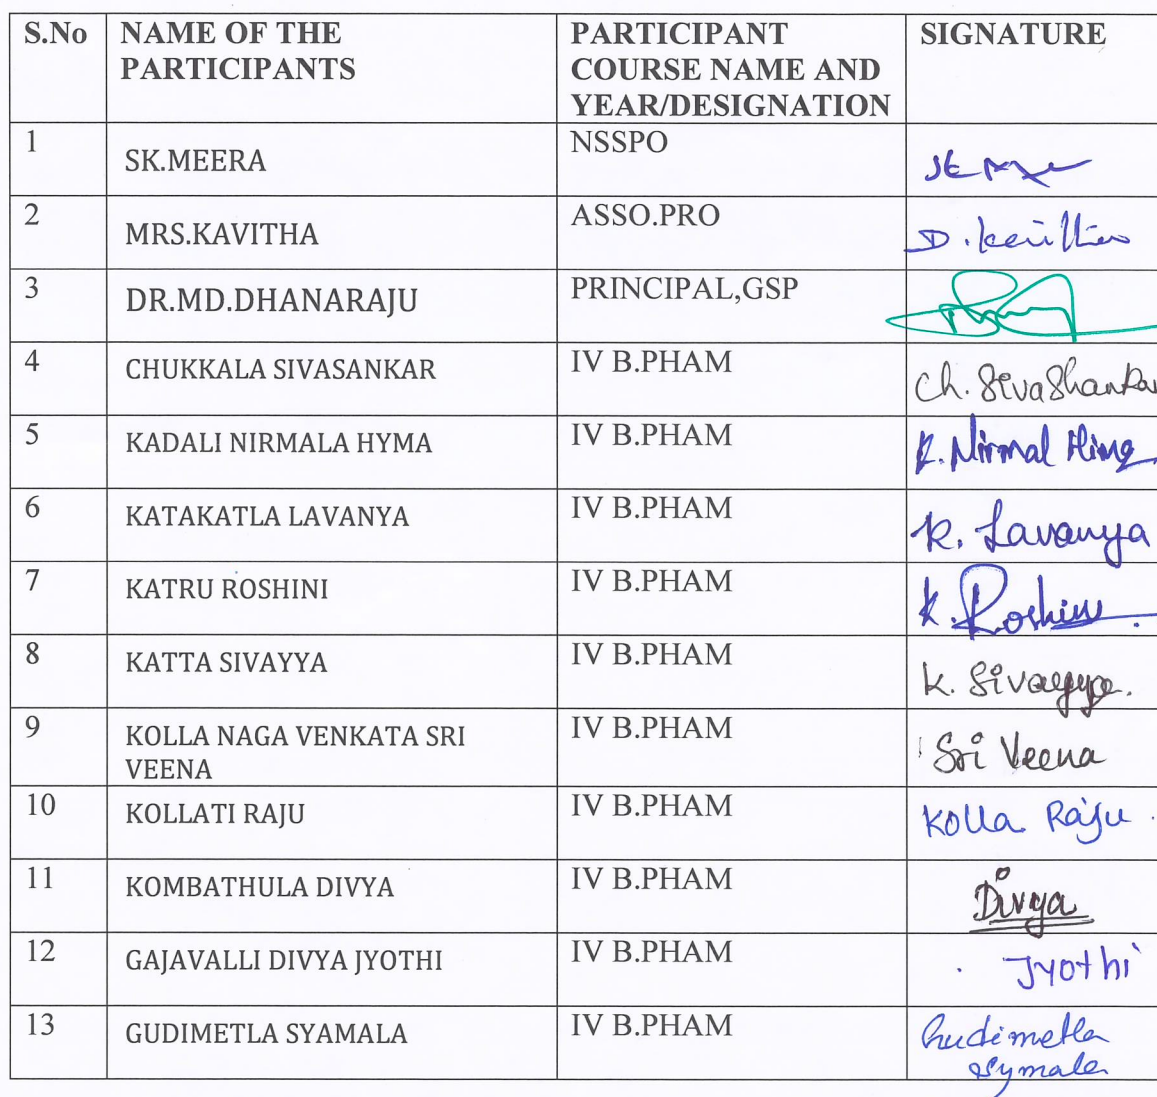 S.No NAME OF THE PARTICIPANTS PARTICIPANT COURSE NAME AND YEAR/DESIGNATION SIGNATURE
1 SK.MEERA NSSPO
2 MRS.KAVITHA ASSO.PRO D.
3 DR.MD.DHANARAJU PRINCIPAL,GSP
4 CHUKKALA SIVASANKAR IV B.PHAM Ch. SivaShankar
5 KADALI NIRMALA HYMA IV B.PHAM K. Nirmal
6 KATAKATLA LAVANYA IV B.PHAM K. Lavanya
7 KATRU ROSHINI IV B.PHAM K. Roshini
8 KATTA SIVAYYA IV B.PHAM K. Sivayya.
9 KOLLA NAGA VENKATA SRI VEENA IV B.PHAM Sri Veena
10 KOLLATI RAJU IV B.PHAM Kolla Raju.
11 KOMBATHULA DIVYA IV B.PHAM Divya
12 GAJAVALLI DIVYA JYOTHI IV B.PHAM Jyothi
13 GUDIMETLA SYAMALA IV B.PHAM Gudimetla
Symala